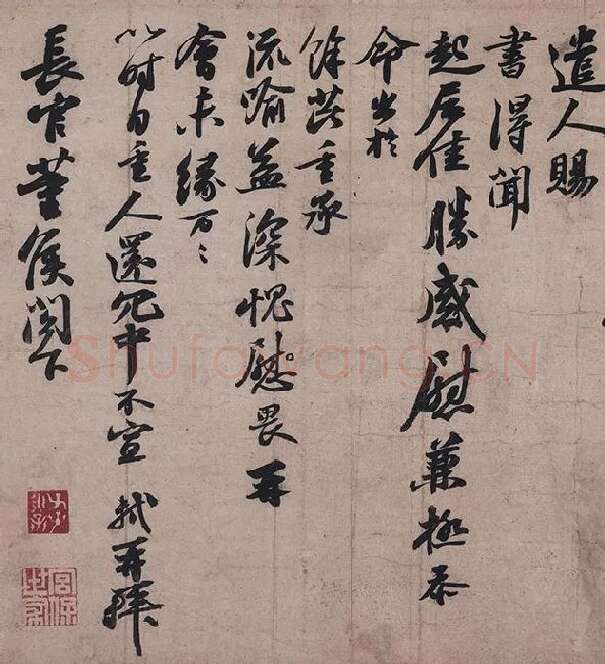 遣人賜
書得聞
起居佳勝感慰兼極忝
命出於
餘芘重承
流喻益深愧慰畏再
會未緣万〻
以时自重人還冗中不宣 軾再拜
長官董侯閣下
Shufawang.CN